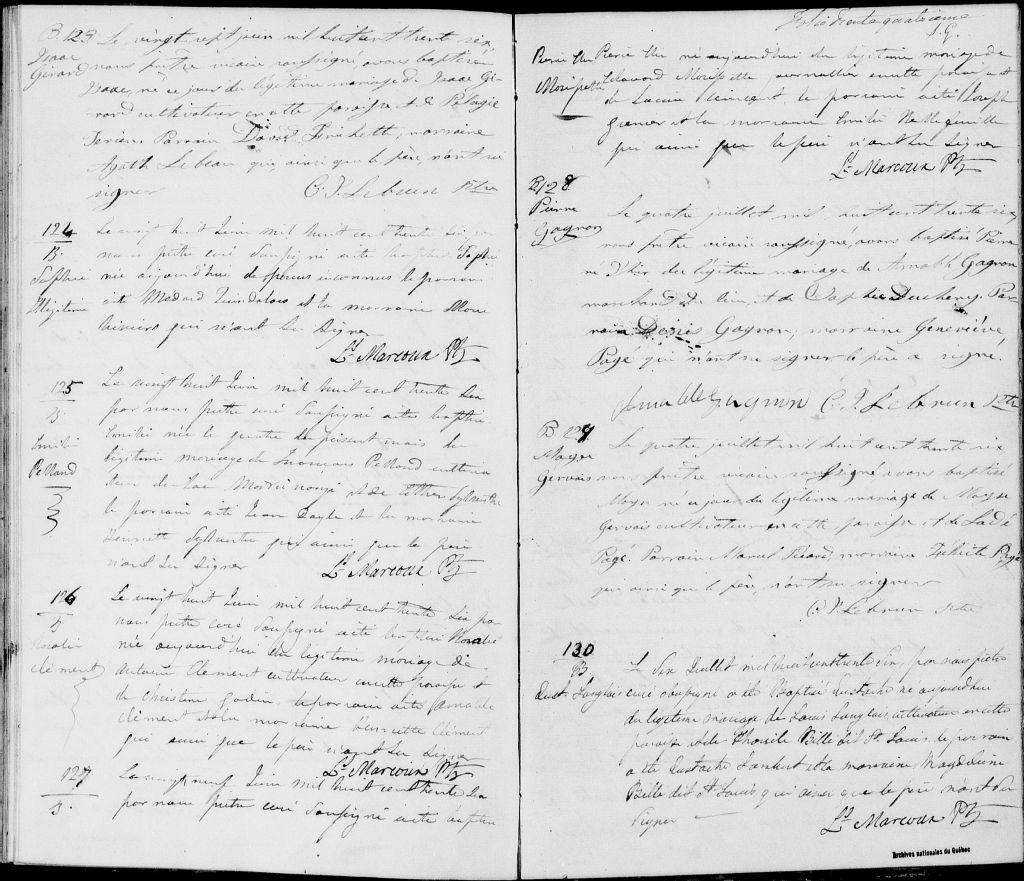 B 123 Le vingt sept juin mil huit cent trente six,
Isaac nous prêtre vicaire soussigné, avons baptisé
Gérard Isaac, né ce jour du légitime mariage d'Isaac Gé-
rard cultivateur en cette paroisse et de Pélagie
Parrain David Frichette, marraine
Agath Lebeau qui, ainsi que le père, n'ont su
signer C. J. Lebrun Ptre
124 Le vingt huit Juin mil huit cent trente Six par
B. nous prêtre curé Soussigné a été baptisé Sophie
Sophie née aujourd'hui de parens inconnus le parrain
Illégitime a été Médard et la marraine
qui n'ont Su Signer
Ls Marcoux Ptr
125 Le vingt huit Juin mil huit cent trente Six
B. par nous prêtre curé Soussigné a été baptisé
Emilie Emilie née le quatre du présent mois du
Pelland légitime mariage de Pelland cultiva
teur de et de Esther Sylvestre
le parrain a été Jean Doyle et la marraine
Henriette Sylvestre qui ainsi que le père
n'ont Su Signer Ls Marcoux Ptr
126 Le vingt huit Juin mil huit cent trente Six par
B nous prêtre curé Soussigné a été baptisé Rosalie
Rosalie née aujourd'hui du légitime mariage de
Clément Antoine Clément cultivateur en cette paroisse et
de Christine Godin. le parrain a été Amable
Clément et la marraine Henriette Clément
qui ainsi que le père n'ont Su Signer
Ls Marcoux Ptr
127 Le vingt neuf Juin mil huit cent trente Six
B. par nous prêtre curé Soussigné a été baptisé
Folio trente quatrième
L.G.
Pierre Pierre né aujourd'hui du légitime mariage de
Morissette Edouard Morissette journalier en cette paroisse et
de Lucie Vincent. le parrain a été Joseph
Grenier et la marraine Emilie
qui ainsi que le père n'ont Su Signer
Ls Marcoux Ptr
B 128
Pierre Le quatre juillet mil huit cent trente six
Gagnon nous prêtre vicaire soussigné, avons baptisé Pierre
né d'hier du légitime mariage de Amable Gagnon
marchand du lieu, et de Sophie Ducheny. Par-
rain Denis Gagnon, marraine Geneviève
Pagé qui n'ont su signer le père a signé.
Amable Gagnon C. J. Lebrun Ptre
B 129 Le quatre juillet mil huit cent trente six
Moyse
Gervais nous prêtre vicaire soussigné avons baptisé
Moyse né ce jour du légitime mariage de Moyse
Gervais cultivateur en cette paroisse et de
Pagé. Parrain Marcel marraine Felicité Pagé
qui ainsi que le père, n'ont su signer
C. J. Lebrun Ptre
130 Le Six Juillet mil huit cent trente Six, par nous prêtre
B
Eust. Langlais curé soussigné a été Baptisé Eustache né aujourd'hui
du légitime mariage de Louis Langlais, cultivateur en cette
paroisse et de Belle dit St. Louis. le parrain
a été Eustache Lambert et la marraine, Magdeleine
Belle dit St Louis qui ainsi que le père n'ont Su
Signer Ls Marcoux Ptr
Archives nationales du Québec